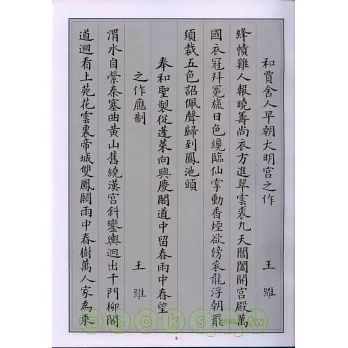 和賈舍人早朝大明宮之作　王維
絳幘雞人報曉籌尚衣方進翠雲裘九天閶闔開宮殿萬
國衣冠拜冕旒日色纔臨仙掌動香煙欲傍袞龍浮朝罷
須裁五色詔佩聲歸到鳳池頭
奉和聖製從蓬萊向興慶閣道中留春雨中春望
之作應制　王維
渭水自縈秦塞曲黃山舊繞漢宮斜鑾輿迥出千門柳閣
道迴看上苑花雲裏帝城雙鳳闕雨中春樹萬人家為乘